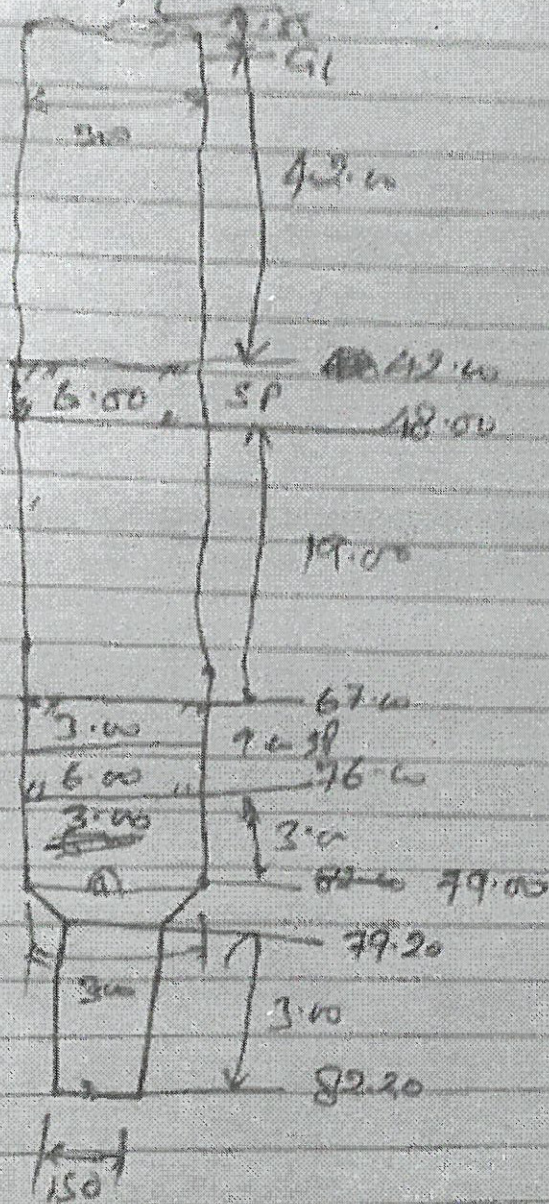 GL
300
42.00
42.00
6.00 SP
48.00
19.00
67.00
3.00 9.00 SP
6.00
76.00
3.00
3.00
79.00
79.20
300
3.00
82.20
150